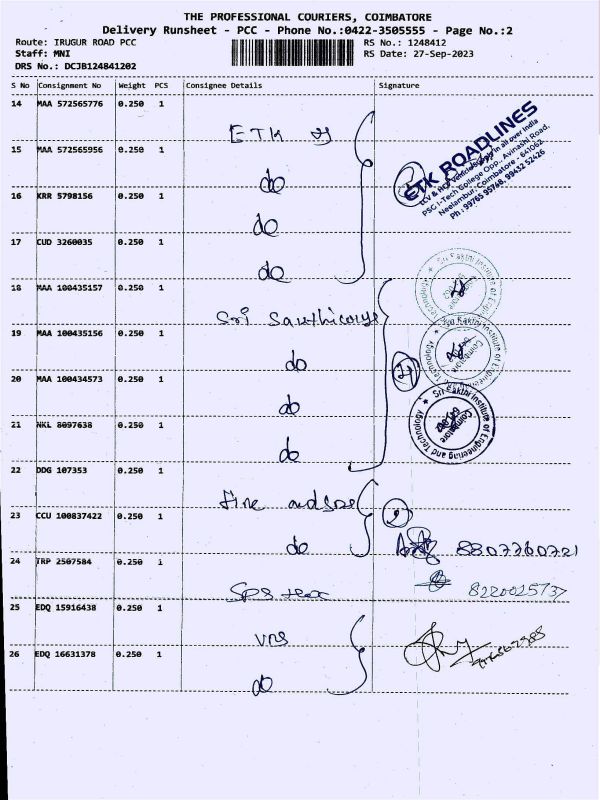 THE PROFESSIONAL COURIERS, COIMBATORE
Delivery Runsheet - PCC - Phone No.:0422-3505555 - Page No.:2
Route: IRUGUR ROAD PCC RS No.: 1248412
Staff: MNI RS Date: 27-Sep-2023
DRS No.: DCJB124841202
S No Consignment No Weight PCS Consignee Details Signature
14 MAA 572565776 0.250 1
ETK
15 MAA 572565956 0.250 1
do
16 KRR 5798156 0.250 1
do
17 CUD 3260035 0.250 1
do
ETK ROADLINES
PSG I-Tech College Opp., Avinashi Road,
Neelambur, Coimbatore - 641062
Ph : 99765 95768, 99432 52426
18 MAA 100435157 0.250 1
Sri
19 MAA 100435156 0.250 1
do
20 MAA 100434573 0.250 1
do
21 NKL 8097638 0.250 1
do
4
Sri Sakthi Institute of Engineering and Technology
Coimbatore
22 DDG 107353 0.250 1
Fine
23 CCU 100837422 0.250 1
2
do 8807760721
24 TRP 2507584 0.250 1
SPS tex
8220025737
25 EDQ 15916438 0.250 1
VNS
26 EDQ 16631378 0.250 1
do